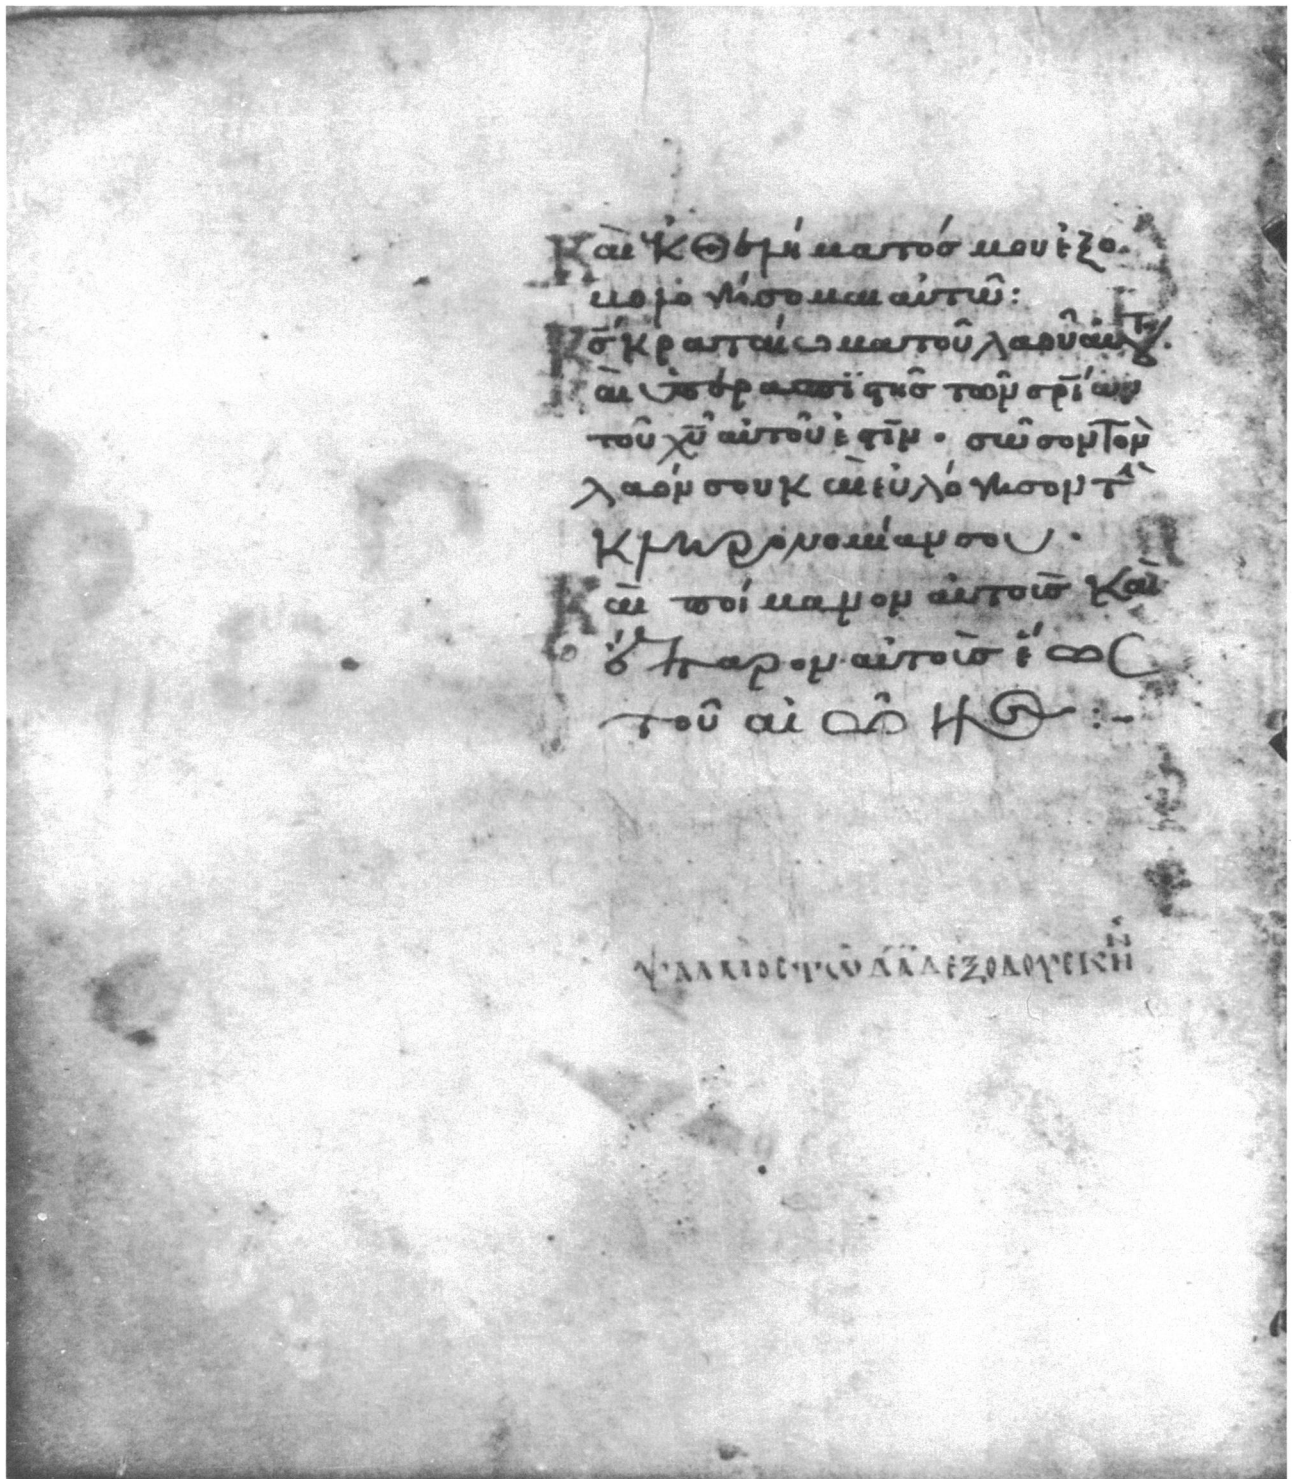 Καὶ ἐκ θελήματός μου ἐξο
μολογήσομαι αὐτῶ:
Κ̅ς̅ κραταίωμα τοῦ λαοῦ αὐτοῦ.
Καὶ ὑπερασπιστὴς τῶν σ̅ρ̅ιῶν
τοῦ χ̅υ̅ αὐτοῦ ἐστίν. σῶσον τὸν
λαόν σου καὶ εὐλόγησον τὴν
κληρονομίαν σου.
Καὶ ποίμανον αὐτοὺς καὶ
ἔπαρον αὐτοὺς ἕως
τοῦ αἰῶνος:-